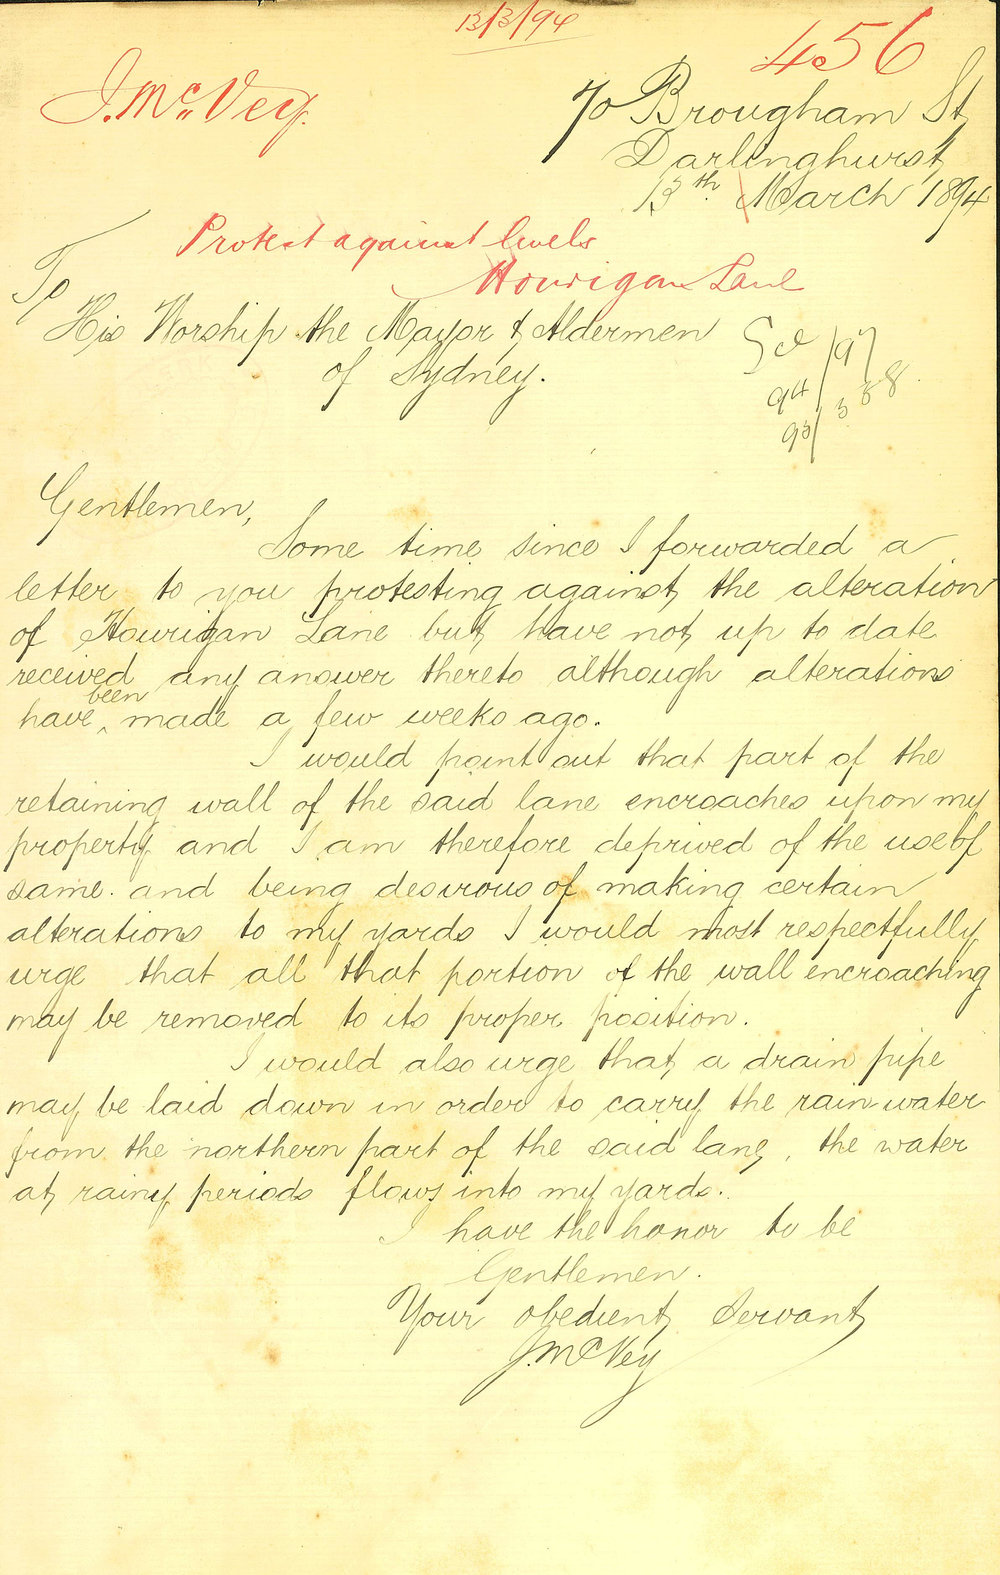 13/3/94
456
J. McVey.
70 Brougham St
Darlinghurst
13th March 1894
Protest against levels
Hourigan Lane
To
His Worship the Mayor & Aldermen
of Sydney.
94
93/388
Gentlemen,
Some time since I forwarded a
letter to you protesting against the alteration
of Hourigan Lane but have not up to date
received any answer thereto although alterations
have been made a few weeks ago.
I would point out that part of the
retaining wall of the said lane encroaches upon my
property and I am therefore deprived of the use of
same. and being desirous of making certain
alterations to my yards I would most respectfully
urge that all that portion of the wall encroaching
may be removed to its proper position.
I would also urge that a drain pipe
may be laid down in order to carry the rain water
from the northern part of the said lane, the water
at rainy periods flows into my yards.
I have the honor to be
Gentlemen.
Your obedient Servant
J. McVey